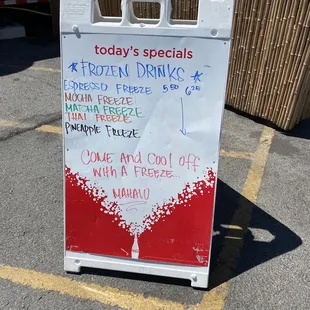 today's specials
FROZEN DRINKS
ESPRESSO FREEZE 5.50 6.25
MOCHA FREEZE
MATCHA FREEZE
THAI FREEZE
PINEAPPLE FREEZE
COME AND COOL OFF
WITH A FREEZE...
MAHALO